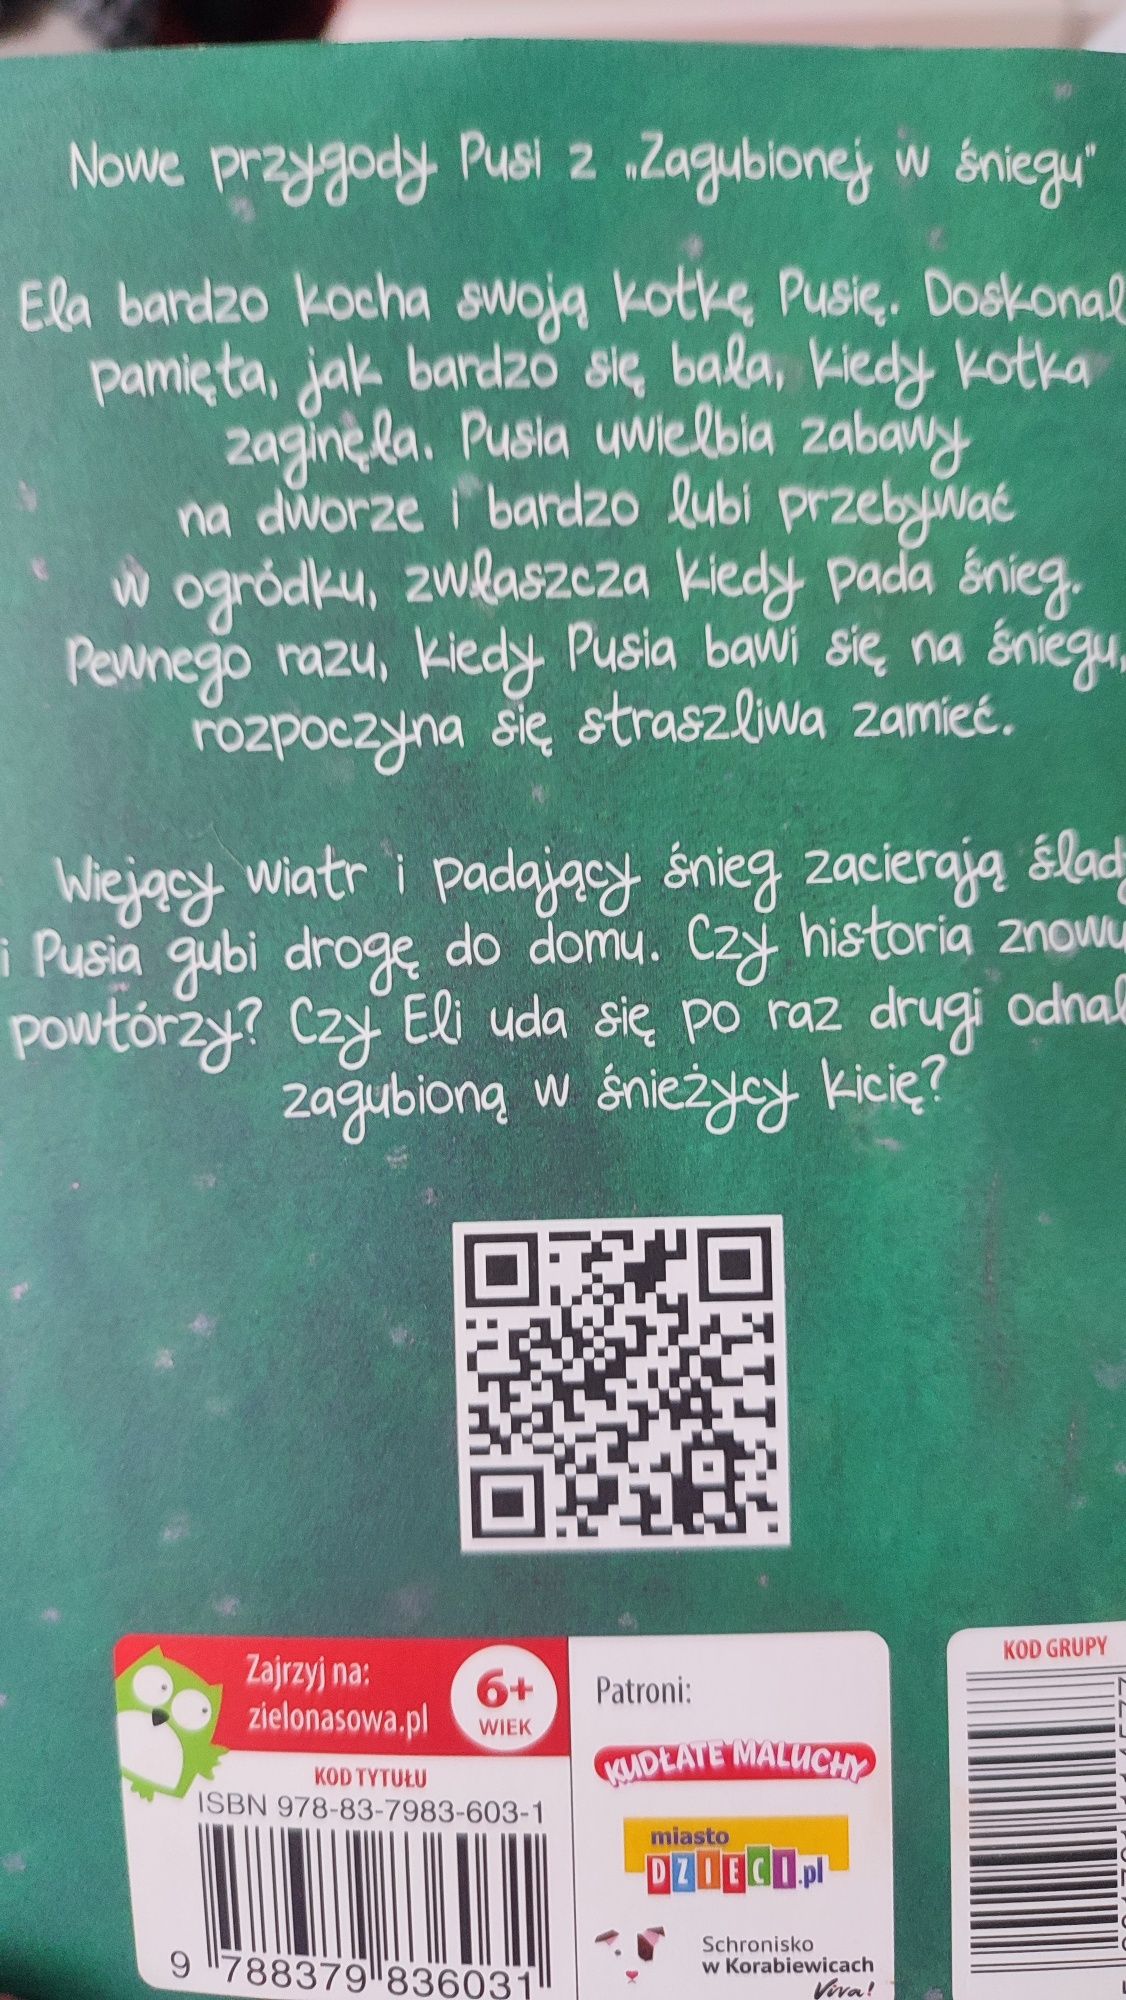 Nowe przygody Pusi z „Zagubionej w śniegu"
Ela bardzo kocha swoją kotkę Pusię. Doskonal
pamięta, jak bardzo się bała, kiedy kotka
zaginęła. Pusia uwielbia zabawy
na dworze i bardzo lubi przebywać
w ogródku, zwłaszcza kiedy pada śnieg.
Pewnego razu, kiedy Pusia bawi się na śniegu,
rozpoczyna się straszliwa zamieć.
Wiejący wiatr i padający śnieg zacierają ślady
i Pusia gubi drogę do domu. Czy historia znowu
powtórzy? Czy Eli uda się po raz drugi odnal
zagubioną w śnieżycy kicię?
Zajrzyj na:
zielonasowa.pl
6+
WIEK
KOD TYTUŁU
ISBN 978-83-7983-603-1
9 788379 836031
Patroni:
KUDŁATE MALUCHY
miasto
DZIECI.pl
Schronisko
w Korabiewicach
Viva!
KOD GRUPY